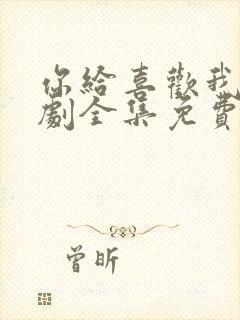 你給喜歡我
劇全集免費
曾昕